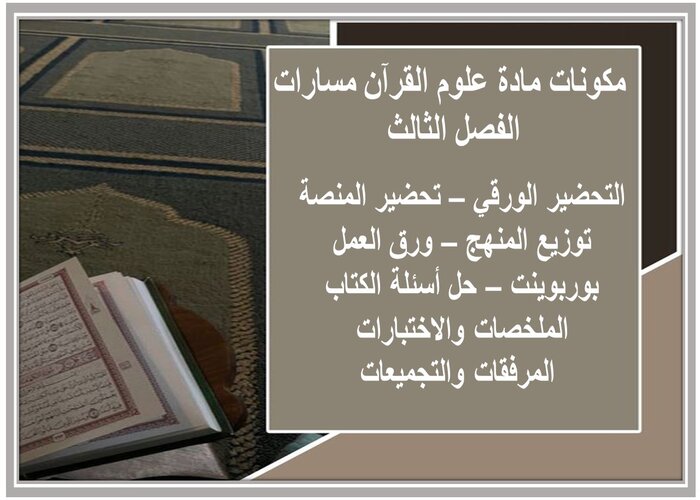 مكونات مادة علوم القرآن مسارات
الفصل الثالث
التحضير الورقي – تحضير المنصة
توزيع المنهج – ورق العمل
بوربوينت – حل أسئلة الكتاب
الملخصات والاختبارات
المرفقات والتجميعات